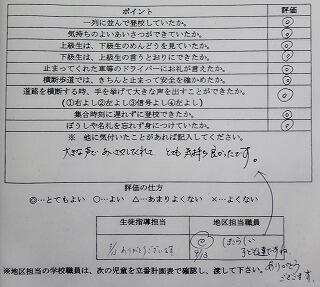 ポイント 評価
一列に並んで登校していたか。 ◎
気持ちのよいあいさつができていたか。 ◎
上級生は、下級生のめんどうを見ていたか。 ◎
下級生は、上級生の言うとおりにできたか。 ◎
止まってくれた車等のドライバーにお礼が言えたか。 ◎
横断歩道では、きちんと止まって安全を確かめたか。 ◎
道路を横断する時、手を挙げて大きな声を出すことができたか。 ◎
(①右よし②左よし③信号よし④左よし)
集合時刻に遅れずに登校できたか。 ◎
ぼうしや名札を忘れず身につけていたか。 ◎
※ 他に気付いたことがあれば記入してください。
大きな声であいさつしてくれて とても気持ち良かったです。
評価の仕方
◎…とてもよい ○…よい △…あまりよくない ×…よくない
生徒指導担当 地区担当職員
ありがとうございます
ありがとう
ございます。
※地区担当の学校職員は、次の児童を立番計画表で確認し、渡して下さい。